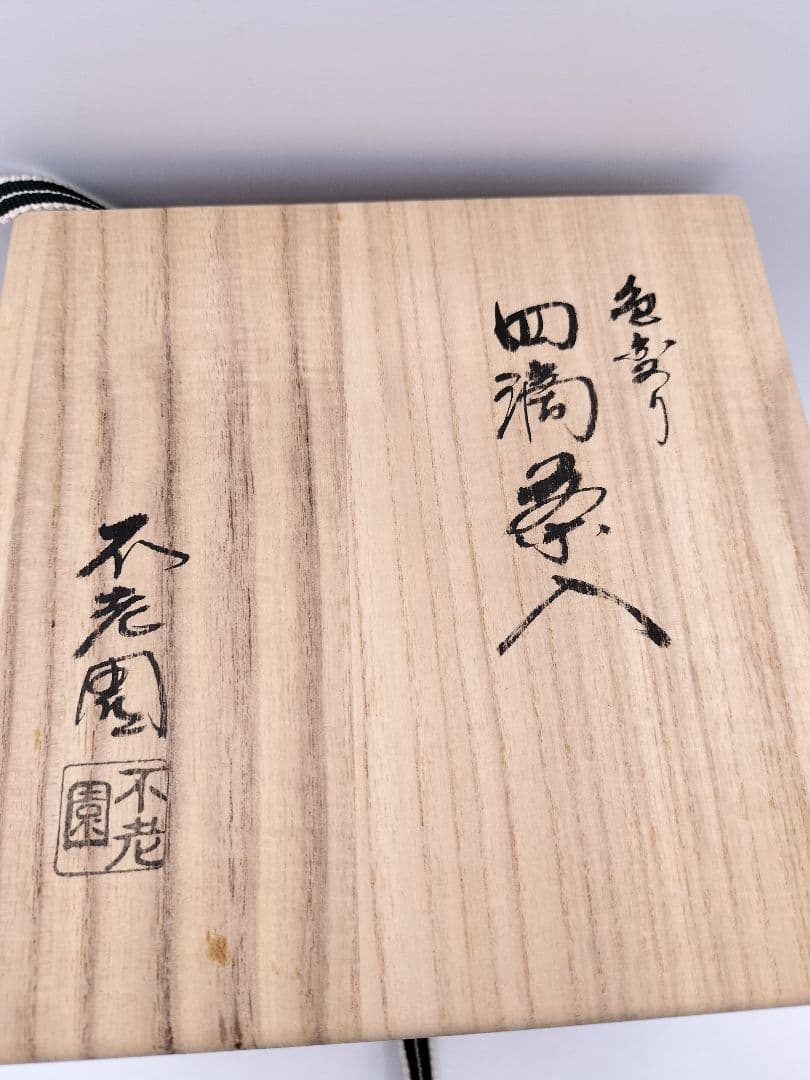 色変り
四滴茶入
不老園
不老園